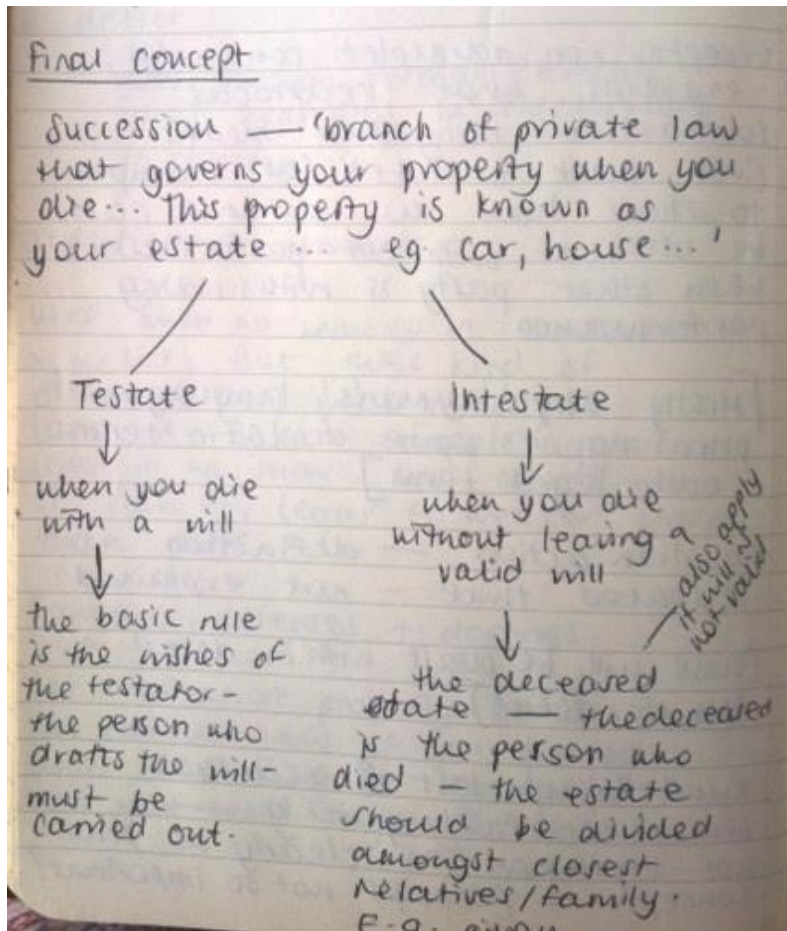 Final concept
Succession — 'branch of private law
that governs your property when you
die... This property is known as
your estate... eg car, house...'
Testate
when you die
with a will
the basic rule
is the wishes of
the testator -
the person who
drafts the will -
must be
carried out.
Intestate
when you die
without leaving a
valid will
also apply
if will is
not valid
the deceased
estate — the deceased
is the person who
died - the estate
should be divided
amongst closest
relatives/family.
E.g.